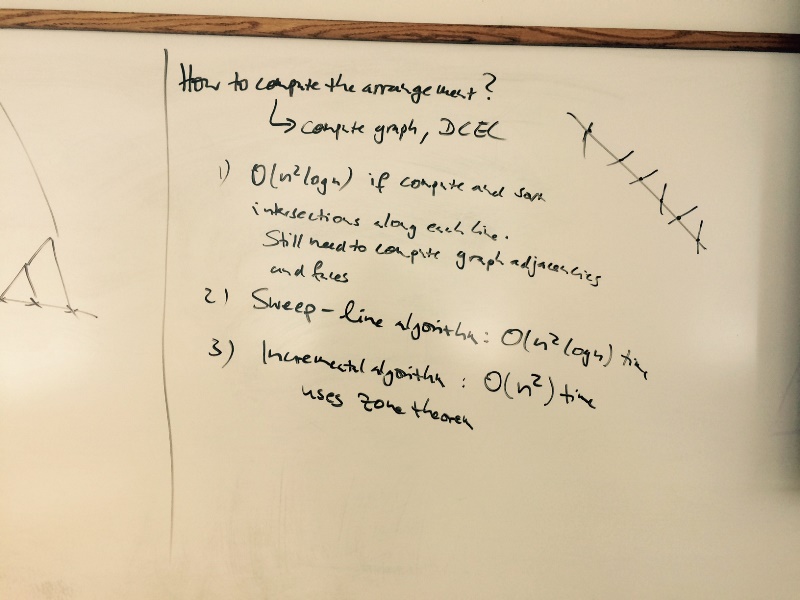 How to compute the arrangement?
↳ compute graph, DCEL
1) O(n² log n) if compute and sort
intersections along each line.
Still need to compute graph adjacencies
and faces
2) Sweep-line algorithm: O(n² log n) time
3) Incremental algorithm: O(n²) time
uses zone theorem